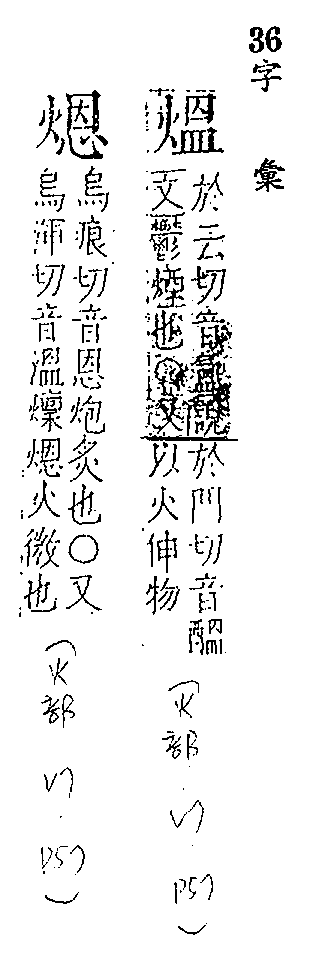 36
字彙
熅
於云切音說於門切音醖
文鬱煙也○又以火伸物
(火部 P57)
煾
烏痕切音恩炮炙也○又
烏渾切音溫煾火微也
(火部 P57)